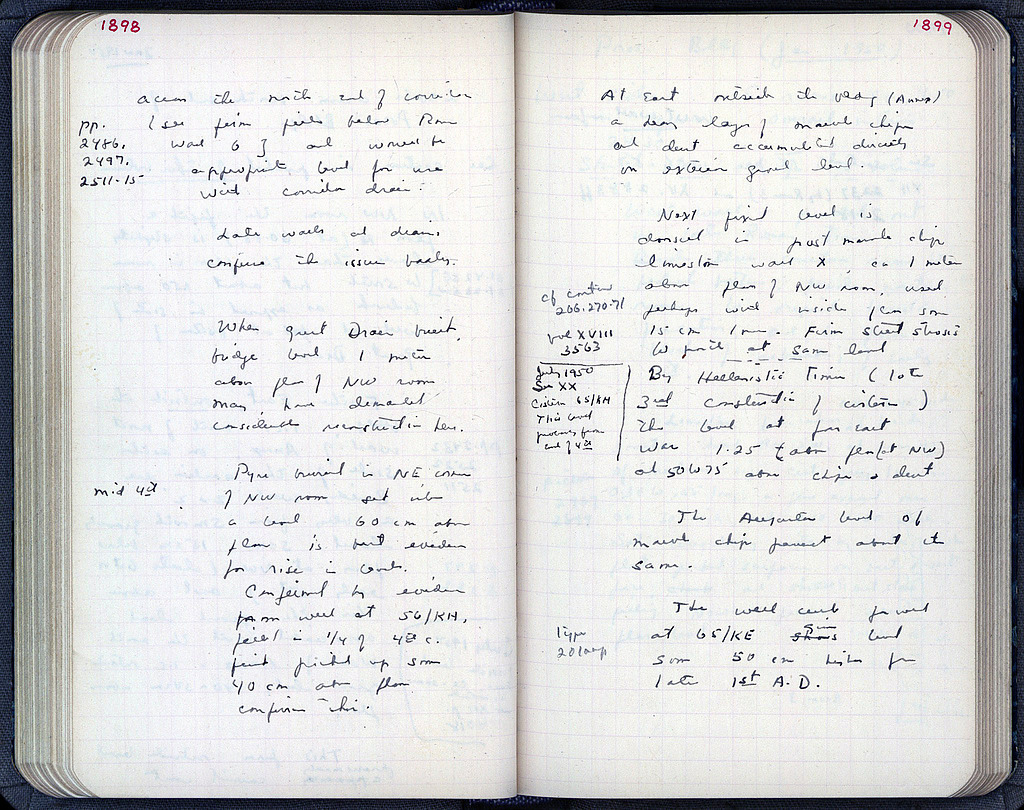 1898
across the north end of corridor
pp.
2486.
2497.
2511-15
(see firm fill below Room
Wall G] and would be
appropriate level for use
with corridor drain.
Late walls and drains
confuse the issue badly.
When Great Drain built,
bridge level 1 meter
above floor of NW room
may have demanded
considerable reconstruction here.
mid 4th
Pyre burial in NE corner
of NW room set into
a level 60 cm above
floor is best evidence
for rise in levels.
Confirmed by evidence
from well at 56/KH,
filled in 1/4 of 4th c.
first picked up some
40 cm above floor
confirms this.
1899
At East outside the bldg (Annex)
a deep layer of marble chips
and dust accumulated directly
on exterior ground level.
Next fixed level is
in post marble chip
limestone wall X, ca 1 meter
above floor of NW room, used
perhaps with inside floor some
15 cm lower. Firm street strosis
to north at same level
cf contour
206.270-71
vol XVIII
3563
July 1950
See XX
Cistern 65/KH
This level
preserves from
end of 4th
By Hellenistic Times (late
3rd construction of cistern)
The level at far east
was 1.25 (above floor at NW)
and 50 to 75 above chips & dust
The Augustan level of
marble chip pavement about the
same.
The well curb found
at 65/KE gives level
Type
201app
some 50 cm higher for
late 1st A.D.